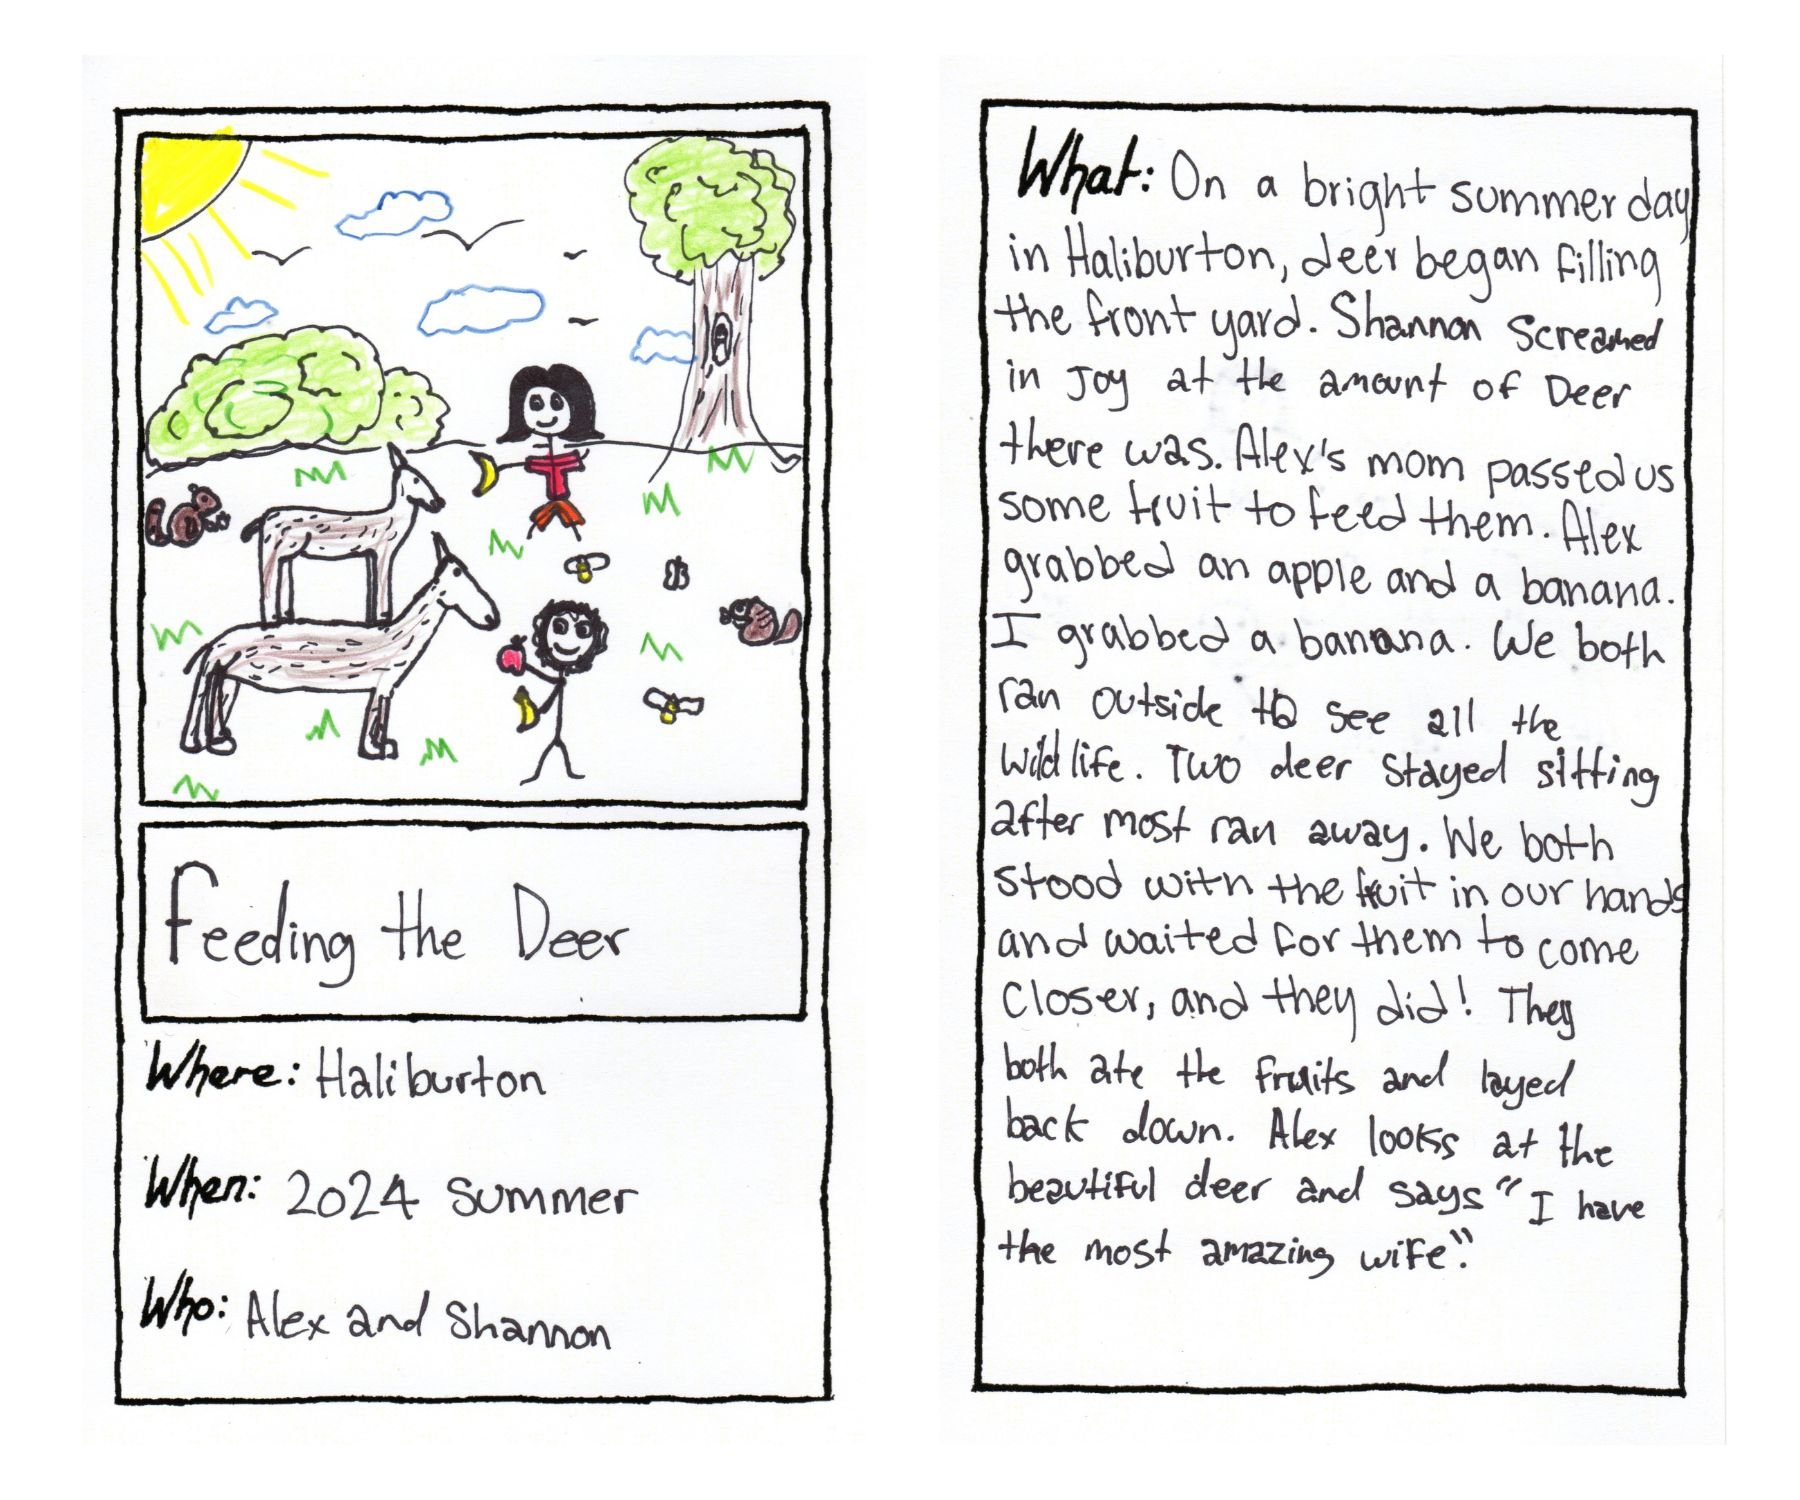 Feeding the Deer
Where: Haliburton
When: 2024 Summer
Who: Alex and Shannon
What: On a bright summer day
in Haliburton, deer began filling
the front yard. Shannon Screamed
in Joy at the amount of Deer
there was. Alex's mom passed us
some fruit to feed them. Alex
grabbed an apple and a banana.
I grabbed a banana. We both
ran outside to see all the
wildlife. Two deer stayed sitting
after most ran away. We both
stood with the fruit in our hands
and waited for them to come
closer, and they did! They
both ate the fruits and layed
back down. Alex looks at the
beautiful deer and says "I have
the most amazing wife".